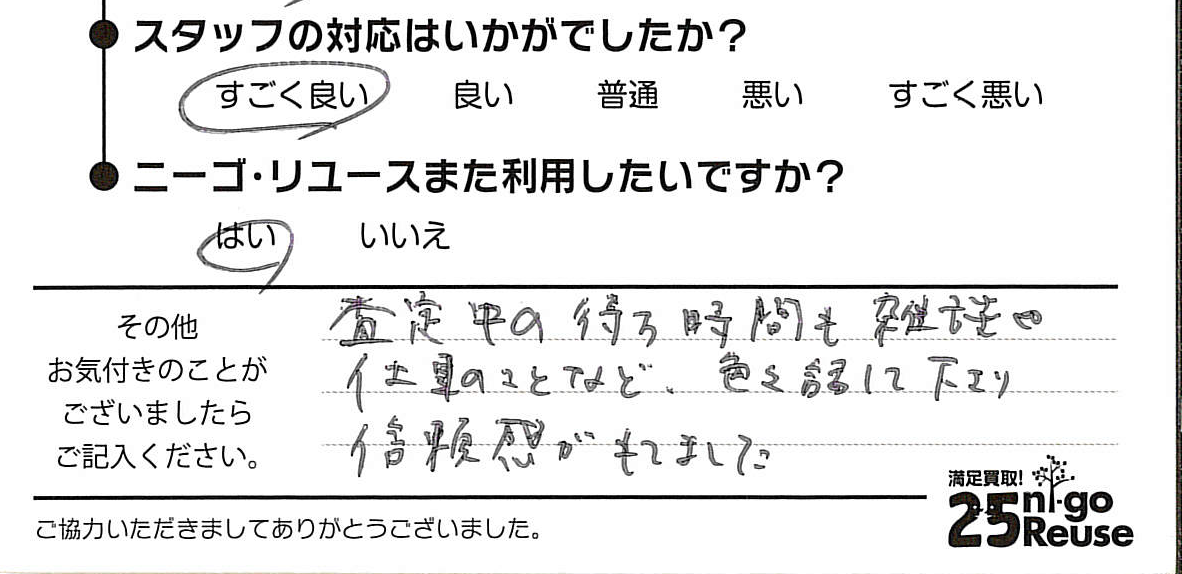 スタッフの対応はいかがでしたか?
すごく良い 良い 普通 悪い すごく悪い
ニーゴ・リユースまた利用したいですか?
はい いいえ
その他
お気付きのことが
ございましたら
ご記入ください。
査定中の待ち時間も雑談や
仕事のことなど、色々話して下さり
信頼感がもてました
満足買取!
25 ni-go
Reuse
ご協力いただきましてありがとうございました。